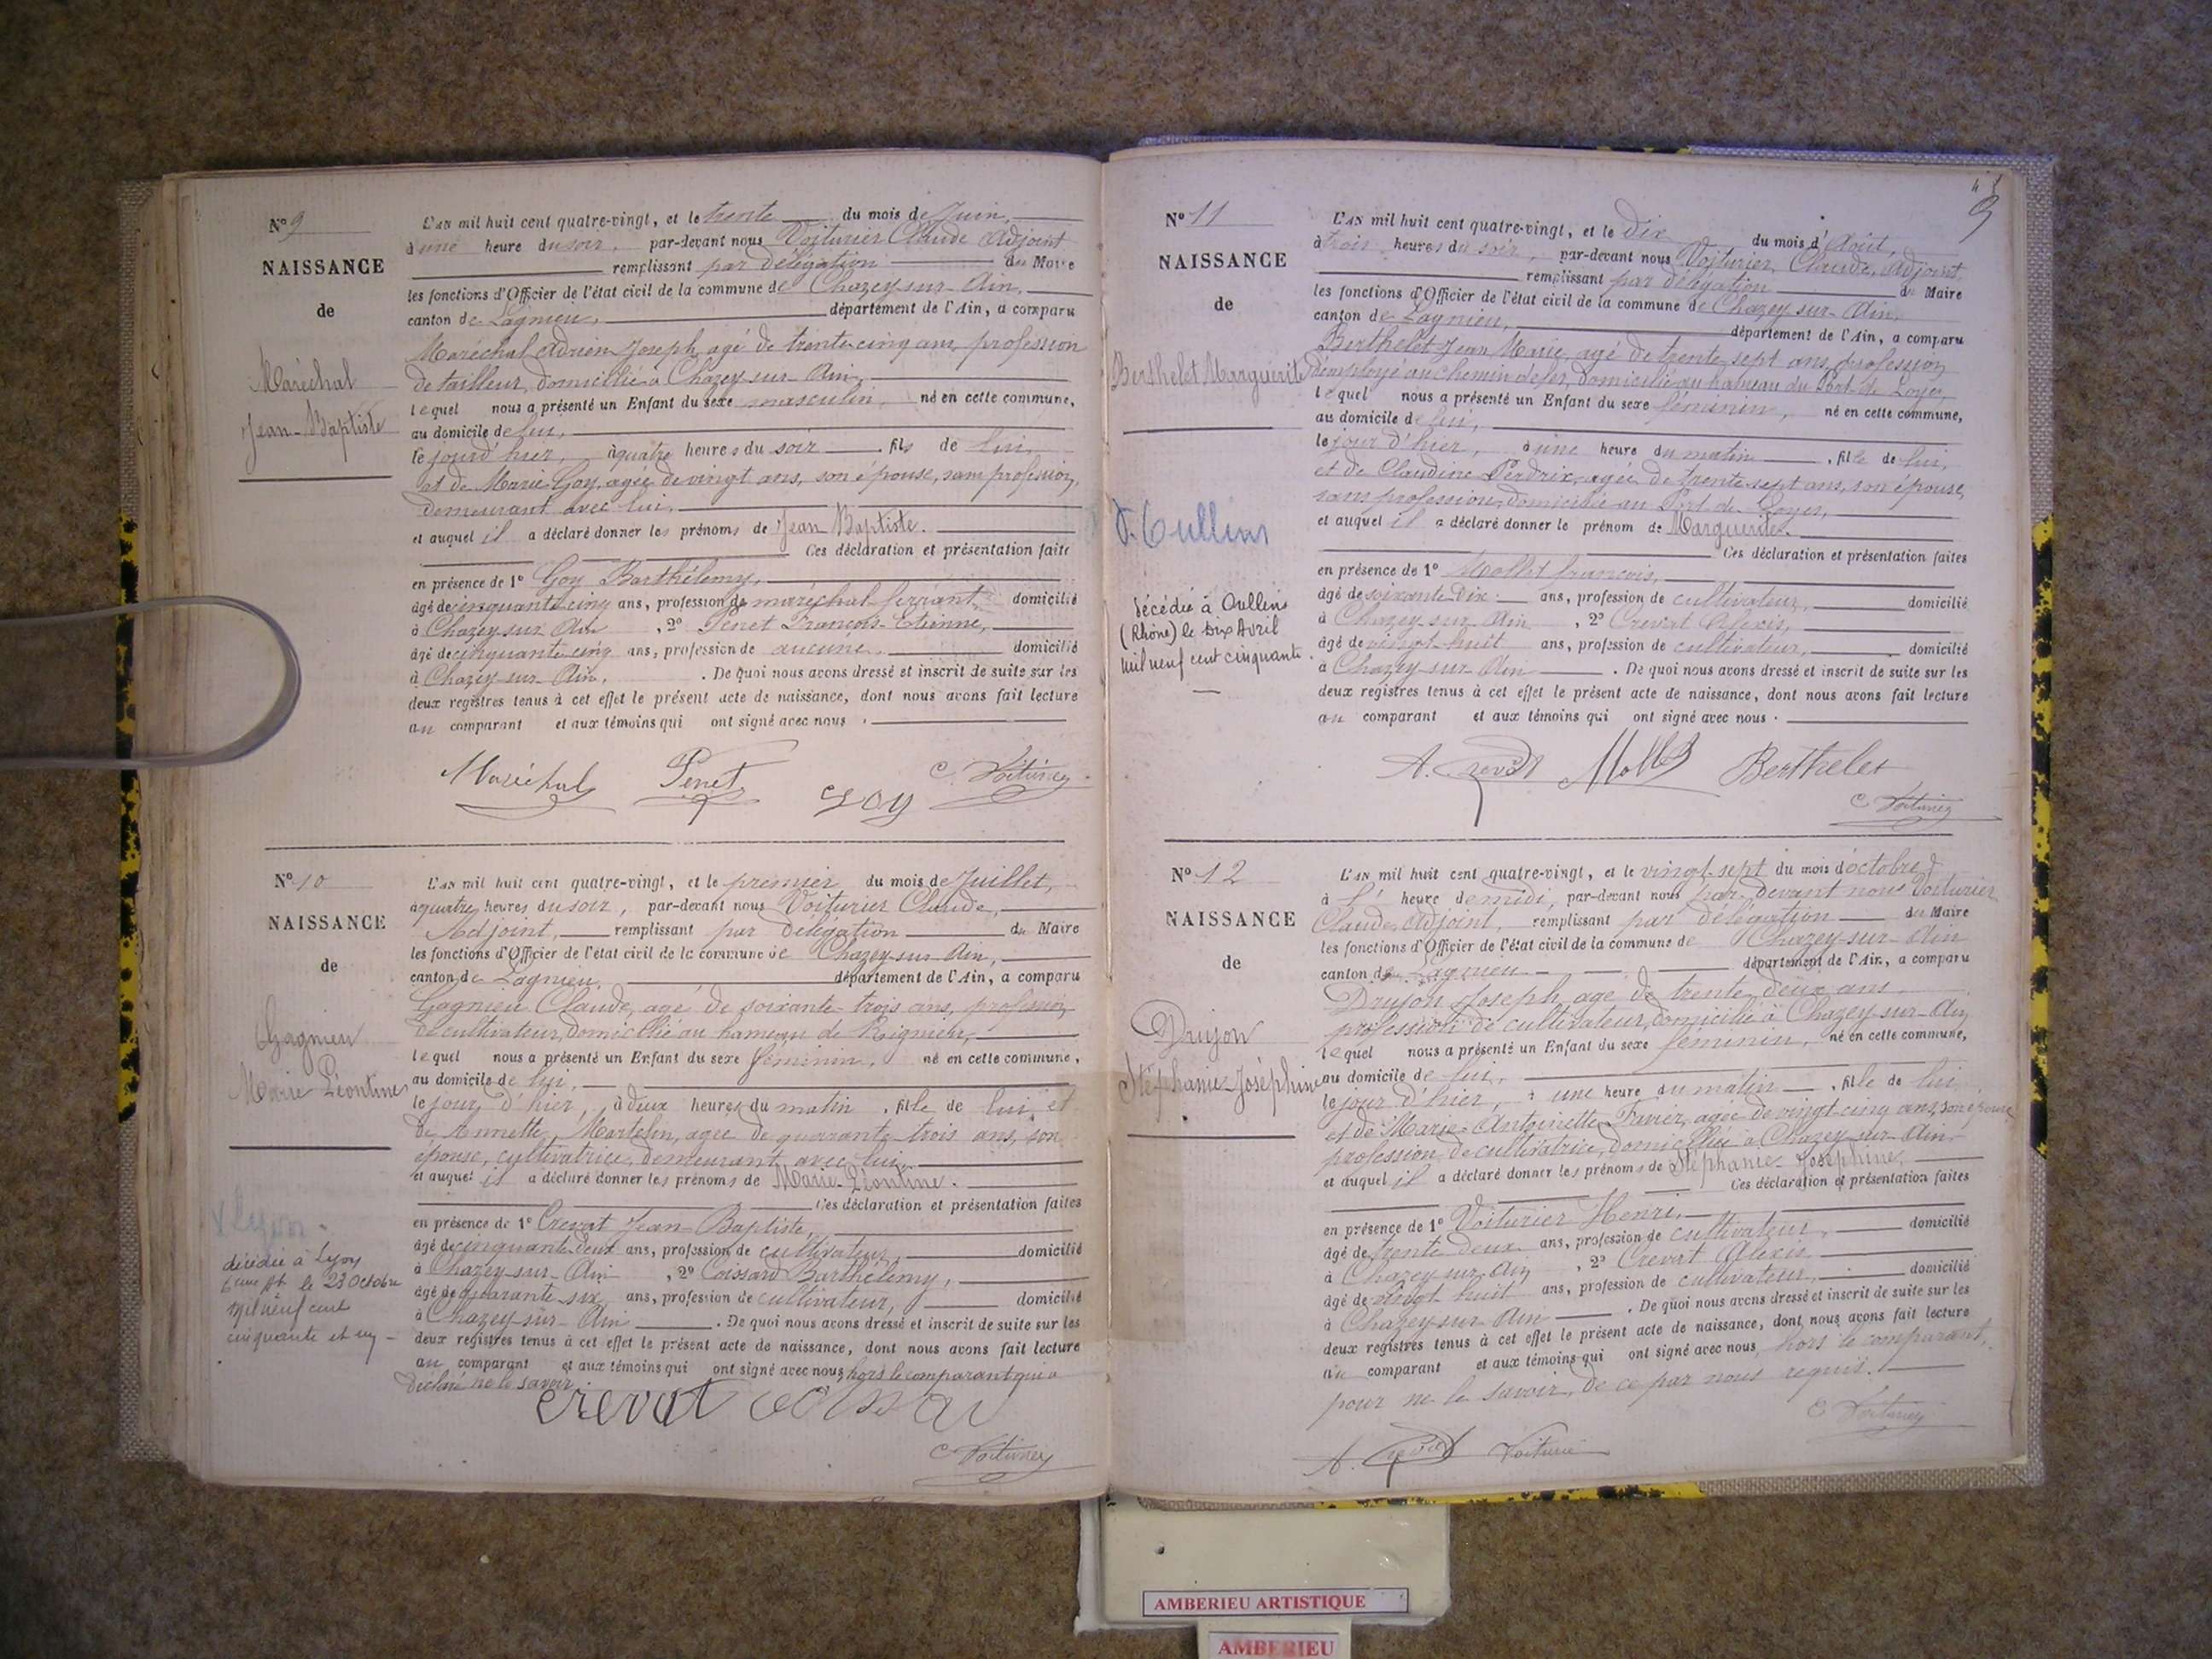 N° 9
NAISSANCE
de
Maréchal
Jean-Baptiste
L'AN mil huit cent quatre-vingt, et le trente du mois de Juin,
à une heure du soir, par-devant nous Voiturier Claude Adjoint
remplissant par délégation du Maire
les fonctions d'Officier de l'état civil de la commune de Chazey-sur-Ain,
canton de Lagnieu, département de l'Ain, a comparu
Maréchal Adrien Joseph, agé de trente cinq ans, profession
de tailleur, domicilié à Chazey-sur-Ain,
lequel nous a présenté un Enfant du sexe masculin, né en cette commune,
au domicile de lui,
le jour d'hier, à quatre heures du soir fils de lui,
et de Marie Goy, agée de vingt ans, son épouse, sans profession,
demeurant avec lui,
et auquel il a déclaré donner les prénoms de Jean Baptiste.
Ces déclaration et présentation faites
en présence de 1° Goy Barthélemy,
âgé de cinquante cinq ans, profession de maréchal-ferrant, domicilié
à Chazey sur Ain, 2° Penet François-Etienne,
âgé de cinquante cinq ans, profession de aucune, domicilié
à Chazey-sur-Ain. De quoi nous avons dressé et inscrit de suite sur les
deux registres tenus à cet effet le présent acte de naissance, dont nous avons fait lecture
au comparant et aux témoins qui ont signé avec nous.
Maréchal Penet Goy C. Voiturier
N° 10
NAISSANCE
de
Gagnieu
Marie Léontine
Lyon
décédée à Lyon
6ème Ar le 23 Octobre
mil neuf cent
cinquante et un
L'AN mil huit cent quatre-vingt, et le premier du mois de Juillet,
à quatre heures du soir, par-devant nous Voiturier Claude,
Adjoint, remplissant par délégation du Maire
les fonctions d'Officier de l'état civil de la commune de Chazey-sur-Ain,
canton de Lagnieu, département de l'Ain, a comparu
Gagnieu Claude, agé de soixante-trois ans, profession
de cultivateur, domicilié au hameau de Rignieu,
lequel nous a présenté un Enfant du sexe féminin, né en cette commune,
au domicile de lui,
le jour d'hier, à deux heures du matin, fille de lui, et
de Annette Martelin, agée de quarante-trois ans, son
épouse, cultivatrice, demeurant avec lui,
et auquel il a déclaré donner les prénoms de Marie-Léontine.
Ces déclaration et présentation faites
en présence de 1° Crevat Jean Baptiste,
âgé de cinquante deux ans, profession de cultivateur, domicilié
à Chazey-sur-Ain, 2° Coissard Barthélemy,
âgé de quarante six ans, profession de cultivateur, domicilié
à Chazey-sur-Ain. De quoi nous avons dressé et inscrit de suite sur les
deux registres tenus à cet effet le présent acte de naissance, dont nous avons fait lecture
au comparant et aux témoins qui ont signé avec nous, hors le comparant qui a
déclaré ne le savoir.
crevat
C. Voiturier
9
N° 11
NAISSANCE
de
Berthelet Marguerite
D. Oullins
Décédée à Oullins
(Rhône) le dix Avril
mil neuf cent cinquante.
L'AN mil huit cent quatre-vingt, et le dix du mois d'Août,
à trois heures du soir, par-devant nous Voiturier, Claude, Adjoint
remplissant par délégation du Maire
les fonctions d'Officier de l'état civil de la commune de Chazey-sur-Ain,
canton de Lagnieu, département de l'Ain, a comparu
Berthelet Jean Marie, agé de trente sept ans, profession
d'employé au chemin de fer, domicilié au hameau du Port de Loyes,
lequel nous a présenté un Enfant du sexe féminin, né en cette commune,
au domicile de lui,
le jour d'hier, à une heure du matin, fille de lui,
et de Claudine Perdrix, agée de trente sept ans, son épouse,
sans profession, domiciliée au Port de Loyes,
et auquel il a déclaré donner le prénom de Marguerite.
Ces déclaration et présentation faites
en présence de 1° Mollet françois,
âgé de soixante dix ans, profession de cultivateur, domicilié
à Chazey sur Ain, 2° Crevat Alexis,
âgé de vingt-huit ans, profession de cultivateur, domicilié
à Chazey-sur-Ain. De quoi nous avons dressé et inscrit de suite sur les
deux registres tenus à cet effet le présent acte de naissance, dont nous avons fait lecture
au comparant et aux témoins qui ont signé avec nous.
A. Crevat Mollet Berthelet
C. Voiturier
N° 12
NAISSANCE
de
Drujon
Stéphanie-Joséphine
L'AN mil huit cent quatre-vingt, et le vingt-sept du mois d'octobre
à l' heure de midi, par-devant nous par devant nous Voiturier
Claude, Adjoint, remplissant par délégation du Maire
les fonctions d'Officier de l'état civil de la commune de Chazey-sur-Ain
canton de Lagnieu département de l'Ain, a comparu
Drujon Joseph, age de trente deux ans,
profession de cultivateur, domicilié à Chazey-sur-Ain
lequel nous a présenté un Enfant du sexe féminin, né en cette commune,
au domicile de lui,
le jour d'hier, à une heure du matin, fille de lui
et de Marie-Antoinette Favier, agée de vingt cinq ans, son épouse
profession de cultivatrice, domiciliée à Chazey-sur-Ain
et auquel il a déclaré donner les prénoms de Stéphanie-Joséphine,
Ces déclaration et présentation faites
en présence de 1° Voiturier Henri,
âgé de trente deux ans, profession de cultivateur, domicilié
à Chazey sur Ain, 2° Crevat Alexis
âgé de vingt huit ans, profession de cultivateur, domicilié
à Chazey-sur-Ain. De quoi nous avons dressé et inscrit de suite sur les
deux registres tenus à cet effet le présent acte de naissance, dont nous avons fait lecture
au comparant et aux témoins qui ont signé avec nous, hors le comparant,
pour ne le savoir, de ce par nous requis.
C. Voiturier
A. Crevat Voiturier
AMBERIEU ARTISTIQUE
AMBERIEU